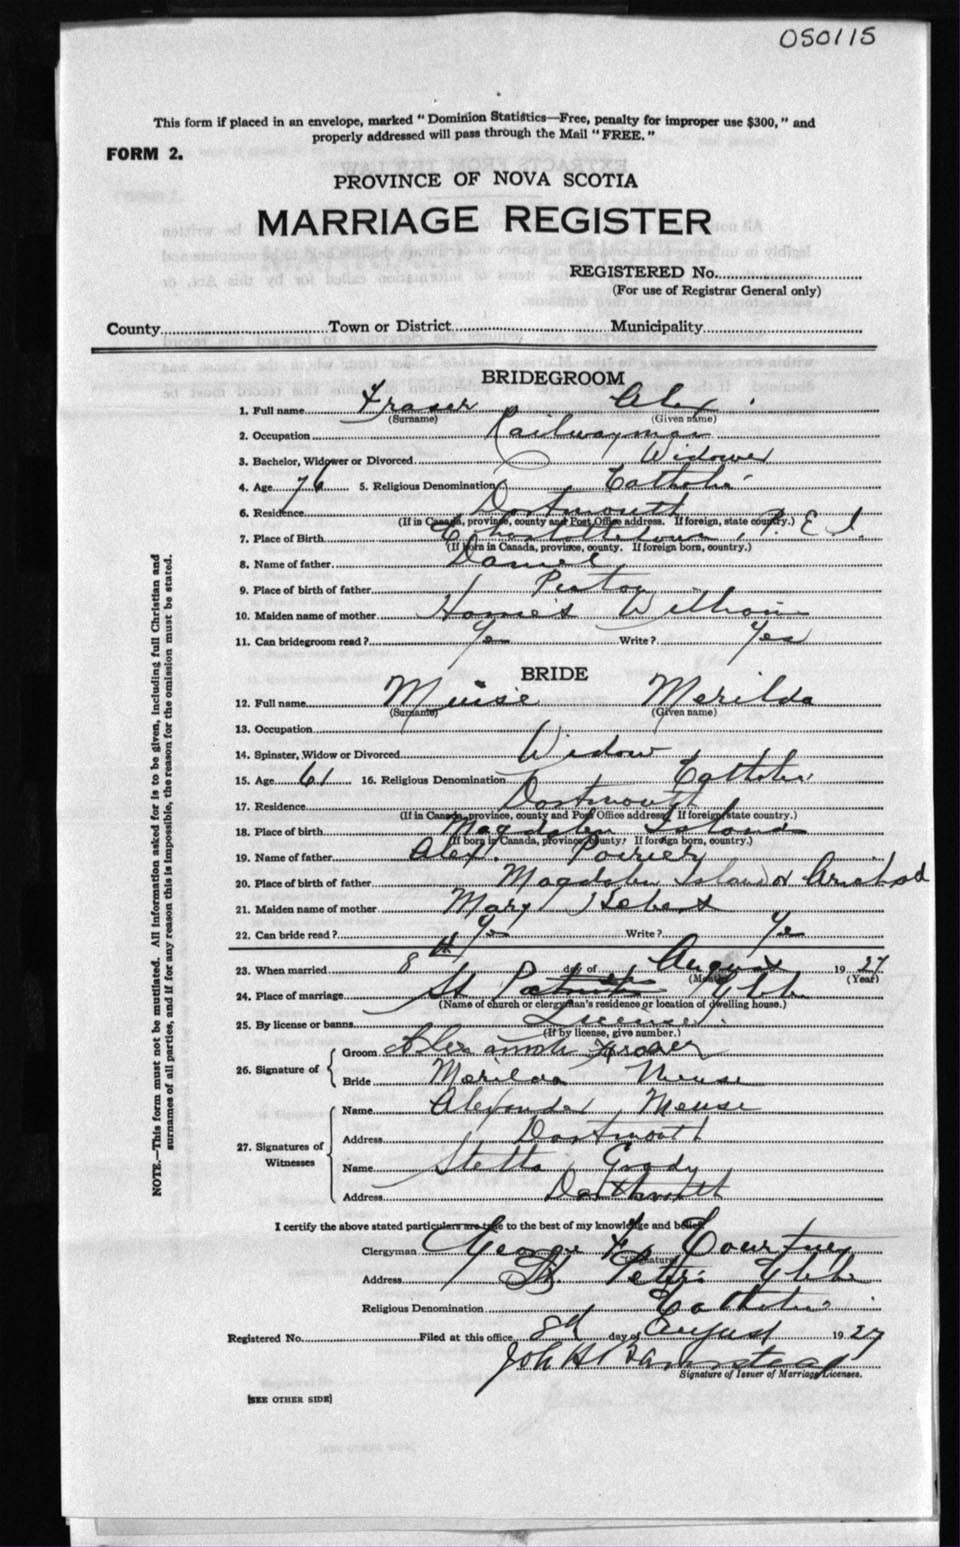 050115
This form if placed in an envelope, marked "Dominion Statistics—Free, penalty for improper use $300," and
properly addressed will pass through the Mail "FREE."
FORM 2.
PROVINCE OF NOVA SCOTIA
MARRIAGE REGISTER
REGISTERED No.
(For use of Registrar General only)
County Town or District Municipality
BRIDEGROOM
1. Full name Fraser Alex
(Surname) (Given name)
2. Occupation Railwayman
3. Bachelor, Widower or Divorced Widower
4. Age 76 5. Religious Denomination Catholic
6. Residence Dartmouth
(If in Canada, province, county and Post Office address. If foreign, state country.)
7. Place of Birth Charlottetown, P. E. I.
(If born in Canada, province, county. If foreign born, country.)
8. Name of father Daniel
9. Place of birth of father Pictou
10. Maiden name of mother
11. Can bridegroom read? Yes Write? Yes
BRIDE
12. Full name Muise Merilda
(Surname) (Given name)
13. Occupation
14. Spinster, Widow or Divorced Widow
15. Age 61 16. Religious Denomination Catholic
17. Residence Dartmouth
(If in Canada, province, county and Post Office address. If foreign state country.)
18. Place of birth Magdalen Islands
(If born in Canada, province, county. If foreign born, country.)
19. Name of father Alex. Poirier
20. Place of birth of father Magdalen Island or Arichat
21. Maiden name of mother Mary Hebert
22. Can bride read? Yes Write? Yes
23. When married 8th day of August 1927
(Month) (Year)
24. Place of marriage St Glebe
(Name of church or clergyman's residence or location of dwelling house.)
25. By license or banns License
(If by license, give number.)
26. Signature of
Groom Fraser
Bride Merilda Meuse
27. Signatures of Witnesses
Name Alexander Meuse
Address Dartmouth
Name Stella Grady
Address Dartmouth
I certify the above stated particulars are true to the best of my knowledge and belief.
Clergyman George Courtney
(Signature)
Address St. Peter's Glebe
Religious Denomination Catholic
Registered No. Filed at this office 8th day of August 1927
Signature of Issuer of Marriage Licenses.
[SEE OTHER SIDE]
NOTE.—This form must not be mutilated. All information asked for is to be given, including full Christian and
surnames of all parties, and if for any reason this is impossible, the reason for the omission must be stated.